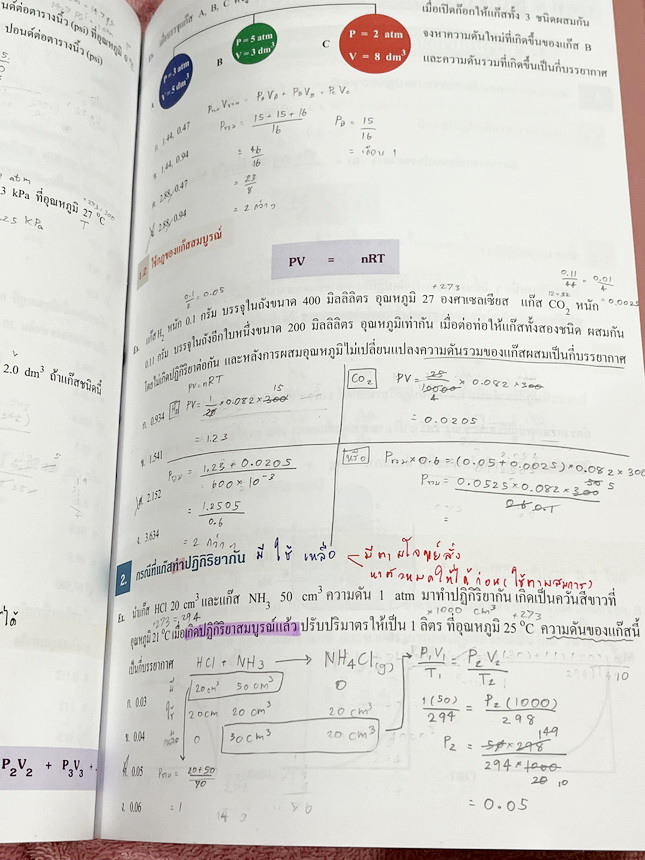 นต์ต่อตารางนิ้ว (psi) ที่อุณหภูมิ
ปอนด์ต่อตารางนิ้ว (psi)
atm
3 kPa ที่อุณหภูมิ 27 °C
25 kPa
T
2.0 dm³ ถ้าแก๊สชนิดนี้
ได้
P₂V₂ + P₃V₃ +
A, B, C
P = 3 atm
V = 5 dm³
B
P = 5 atm
V = 3 dm³
C
P = 2 atm
V = 8 dm³
เมื่อเปิดก๊อกให้แก๊สทั้ง 3 ชนิดผสมกัน
จงหาความดันใหม่ที่เกิดขึ้นของแก๊ส B
และความดันรวมที่เกิดขึ้นเป็นกี่บรรยากาศ
ก. 1.44, 0.47
ข. 1.44, 0.94
ค. 2.88, 0.47
ง. 2.88, 0.94
= PAVA + PBVB + PCVC
15 + 15 + 16
16
= 46
16
= 23
8
= 2 กว่าๆ
PB = 15
16
= เกือบ 1
1.2 ใช้กฎของแก๊สสมบูรณ์
PV = nRT
0.1
2 = 0.05
+273
0.11
44 = 0.01
4
12+32
= 0.0025
Ex. แก๊ส H₂ หนัก 0.1 กรัม บรรจุในถังขนาด 400 มิลลิลิตร อุณหภูมิ 27 องศาเซลเซียส แก๊ส CO₂ หนัก
0.11 กรัม บรรจุในถังอีกใบหนึ่งขนาด 200 มิลลิลิตร อุณหภูมิเท่ากัน เมื่อต่อท่อให้แก๊สทั้งสองชนิด ผสมกัน
โดยไม่เกิดปฏิกิริยาต่อกัน และหลังการผสมอุณหภูมิไม่เปลี่ยนแปลงความดันรวมของแก๊สผสมเป็นกี่บรรยากาศ
ก. 0.934
ข. 1.541
ค. 2.152
ง. 3.634
PV = nRT
H₂ PV = 1
20 × 0.082 × 300 15
= 1.23
Pรวม = 1.25 + 0.0205
600 × 10⁻³
= 1.2505
0.6
= 2 กว่าๆ
CO₂ PV = 25
10000
4 × 0.082 × 300
= 0.0205
หรือ Pรวม × 0.6 = (0.05 + 0.0025) × 0.082 × 300
Pรวม = 0.0525 × 0.082 × 300
0.6 0.1
=
2. กรณีที่แก๊สทำปฏิกิริยากัน มี ใช้ เหลือ
มีตามโจทย์สั่ง
หาตัวหมดให้ได้ก่อน (ใช้ตามสมการ)
Ex. นำแก๊ส HCl 20 cm³ และแก๊ส NH₃ 50 cm³ ความดัน 1 atm มาทำปฏิกิริยากัน เกิดเป็นควันสีขาวที่
+273 = 294
× 1000 cm³
+273
อุณหภูมิ 21 °C เมื่อเกิดปฏิกิริยาสมบูรณ์แล้ว ปรับปริมาตรให้เป็น 1 ลิตร ที่อุณหภูมิ 25 °C ความดันของแก๊สนี้
เป็นกี่บรรยากาศ
ก. 0.03
ข. 0.04
ค. 0.05
ง. 0.06
HCl + NH₃ → NH₄Cl(g)
มี 20 cm³ 50 cm³ 0
ใช้ 20 cm 20 cm³ 20 cm³
เหลือ 0 30 cm³ 20 cm³
Pรวม = 20+50
= 1
P₁V₁
T₁ = P₂V₂
T₂
1(50)
294 = P₂(1000)
298
P₂ = 50 × 298 149
294 × 1000
20 10
= 0.05